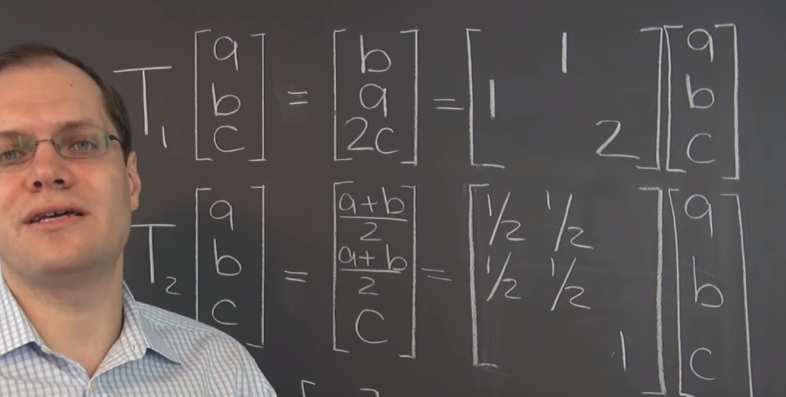 T₁ [a b c] = [b a 2c] = [1 1 2] [a b c]
T₂ [a b c] = [(a+b)/2 (a+b)/2 c] = [1/2 1/2 1/2 1/2 1] [a b c]